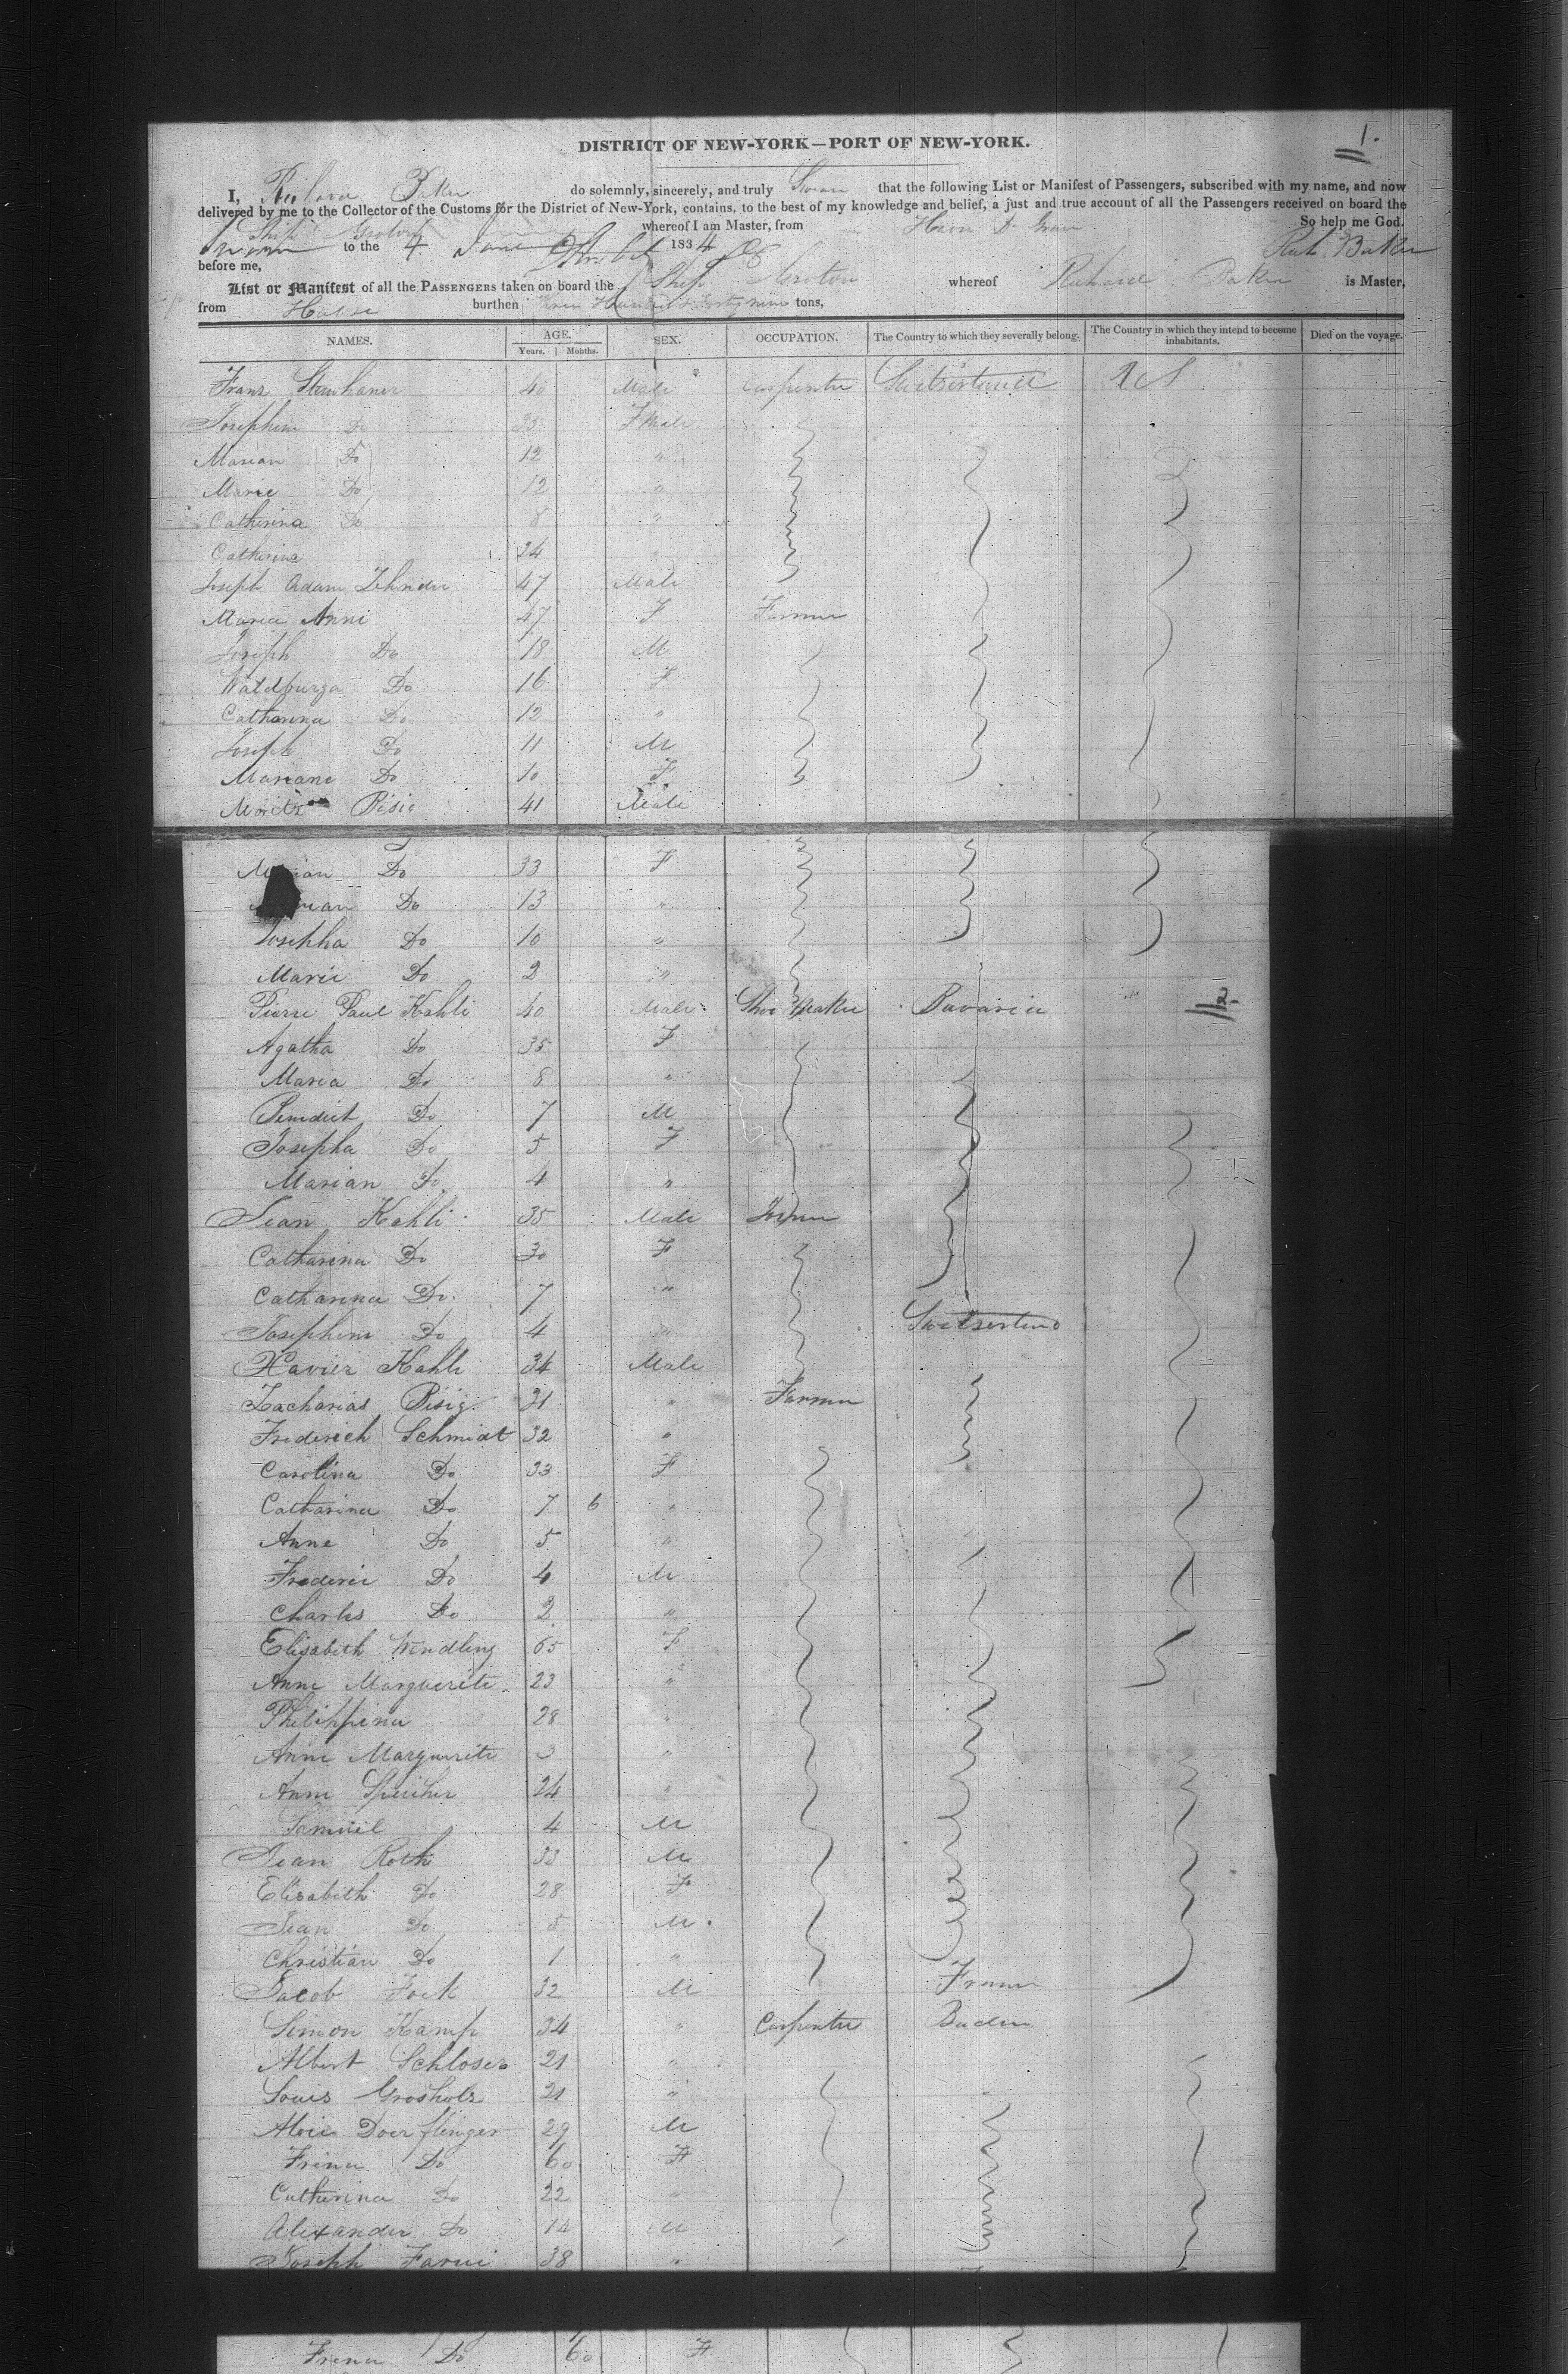 1.
DISTRICT OF NEW-YORK—PORT OF NEW-YORK.
I, Richard Baker do solemnly, sincerely, and truly Swear that the following List or Manifest of Passengers, subscribed with my name, and now
delivered by me to the Collector of the Customs for the District of New-York, contains, to the best of my knowledge and belief, a just and true account of all the Passengers received on board the
Ship Groton whereof I am Master, from So help me God.
Sworn to the 4 June 1834 Baker
before me,
List or Manifest of all the PASSENGERS taken on board the Ship Groton whereof Richard Baker is Master,
from burthen Three Hundred & Forty nine tons,
NAMES. AGE. SEX. OCCUPATION. The Country to which they severally belong. The Country in which they intend to become inhabitants. Died on the voyage.
Years. Months.
Franz 40 Male Carpenter
Josephine Do 35 Female
Marian Do 12 "
Marie Do 12 "
Catherina Do 8 "
Catherina 24 "
Joseph Adam Zehnder 47 Male
Maria Anni 47 F Farmer
Joseph Do 18 M
Waldburga Do 16 F
Catharina Do 12 "
Joseph Do 11 M
Mariane Do 10 F
Moritz Bisig 41 Male
Do 33 F
Do 13 "
Josepha Do 10 "
Marie Do 2 "
Pierre Paul Kahli 40 Male Shoe Maker Bavaria 2
Agatha Do 35 F
Maria Do 8 "
Benedict Do 7 M
Josepha Do 5 F
Marian Do 4 "
Jean Kahli 35 Male
Catharina Do 30 F
Catharina Do. 7 "
Josephine Do 4 "
Xavier Kahli 34 Male
Zacharias Bisig 31 " Farmer
Frederich Schmidt 32 "
Carolina Do 33 F
Catharina Do 7 6 "
Anne Do 5 "
Frederic Do 4 M
Charles Do 2 "
Elisabeth Wendling 65 F
Anne Marguerite 23 "
Philippina 28 "
Anne Marguerite 3 "
Anne Speicher 24 "
Samuel 4 M
Jean Roth 33 M
Elisabeth Do 28 F
Jean Do 5 M
Christian Do 1 "
Jacob 32 M
Simon Kamp 34 " Carpenter Baden
Albert Schloser 21 "
Louis Grosholz 21 "
Alois Doerflinger 29 M
Do 60 F
Catherina Do 22 "
Alexander Do 14 M
Joseph 38 "
Do 60 F